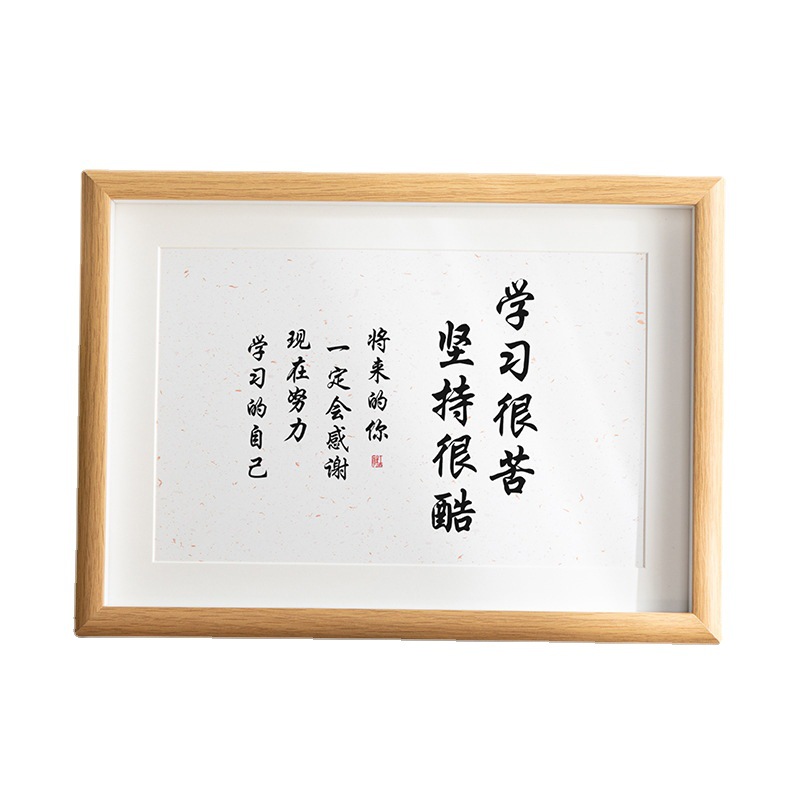 学习很苦
坚持很酷
将来的你
一定会感谢
现在努力
学习的自己